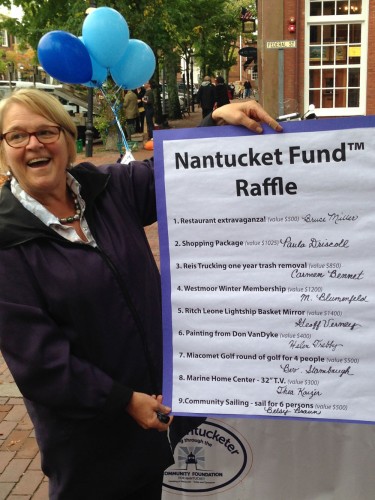 FEDERAL ST
Nantucket Fund™
Raffle
1. Restaurant extravaganza! (value $500) Bruce Miller
2. Shopping Package (value $1025) Paula Driscoll
3. Reis Trucking one year trash removal (value $850)
Carmen Bennet
4. Westmoor Winter Membership (value $1200)
M. Blumenfeld
5. Ritch Leone Lightship Basket Mirror (value $1400)
Geoff Verney
6. Painting from Don VanDyke (value $400)
Helen
7. Miacomet Golf round of golf for 4 people (value $500)
Bev. Stambaugh
8. Marine Home Center - 32" T.V. (value $300)
Thea Kaizer
9.Community Sailing - sail for 6 persons (value $500)
Betsy
Nantucketer
through the
COMMUNITY FOUNDATION
FOR NANTUCKET